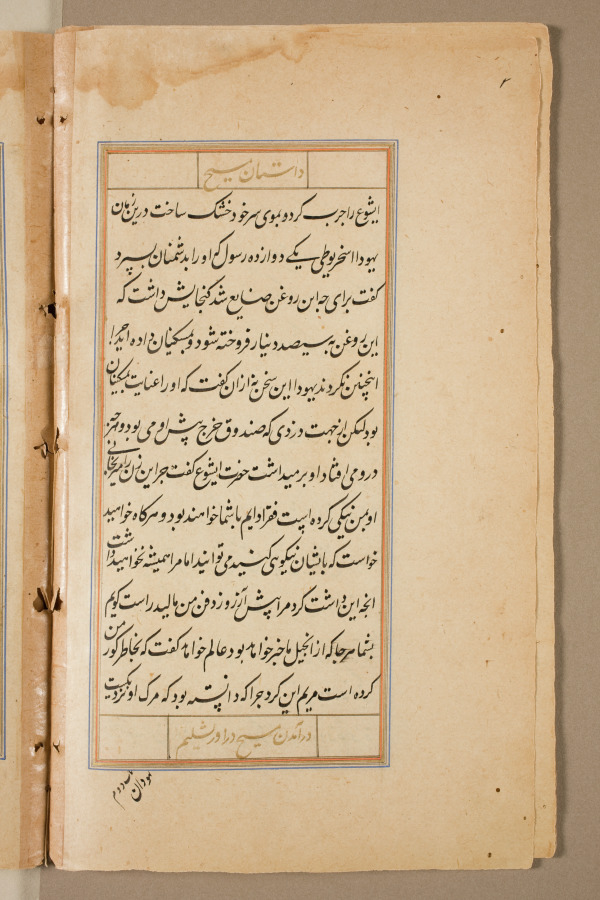 ۲
داستان مسیح
ایشوع را چرب کرد و بموی سر خود خشک ساخت درین زمان
یهودا اسخریوطی یکے دوازده رسول که او را بدشمنان بسپرد
کفت برای چه این روغن ضایع شد کنجایش داشت که
این روغن به سیصد دینار فروخته شود و بمسکینان داده آید چرا
اینچنین نکردند یهودا این سخن نه ازان کفت که او را عنایت بمسکینان
بود لیکن از جهت دزدی که صندوق خرج پیش او می بود و هرچیز
درو می افتاد او بر میداشت حضرت ایشوع کفت چرا این زن را میرنجانی
او بمن نیکی کرده است فقرا دایم با شما خواهند بود و هرکاه خواهید
خواست که بایشان نیکویی کنید می توانید اما مرا همیشه نخواهید داشت
انچه این داشت کرد مرا پیش از روز دفن من مالید راست کویم
بشما هر جا که از انجیل ما خبر خواهد بود عالم خواهد کفت که بخاطر کور من
کرده است مریم این کرد چرا که دانسته بود که مرک او نزدیکست
درآمدن مسیح در اورشلیم